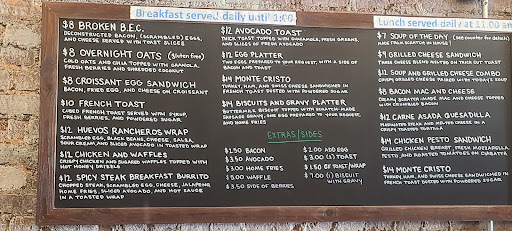 Breakfast served daily until 1:00
Lunch served daily at 11:00 am
$8 BROKEN B.E.C.
DECONSTRUCTED BACON, (SCRAMBLED) EGGS,
AND CHEESE SERVED WITH TOAST SLICES
$8 OVERNIGHT OATS (gluten free)
COLD OATS AND CHIA TOPPED WITH GRANOLA,
FRESH BERRIES AND SHREDDED COCONUT
$8 CROISSANT EGG SANDWICH
BACON, FRIED EGG, AND CHEESE ON CROISSANT
$10 FRENCH TOAST
CUBED FRENCH TOAST SERVED WITH SYRUP,
FRESH BERRIES, AND POWDERED SUGAR
$12 HUEVOS RANCHEROS WRAP
SCRAMBLED EGG, BLACK BEANS, CHEESE, SALSA,
SOUR CREAM, AND SLICED AVOCADO IN TOASTED WRAP
$12 CHICKEN AND WAFFLES
CRISPY CHICKEN AND SQUARED WAFFLES TOPPED WITH
HOT HONEY DRIZZLE
$12 SPICY STEAK BREAKFAST BURRITO
CHOPPED STEAK, SCRAMBLED EGG, CHEESE, JALAPENO
HOME FRIES, SLICED AVOCADO, AND HOT SAUCE
IN A TOASTED WRAP
$12 AVOCADO TOAST
THICK TOAST TOPPED WITH GUACAMOLE, FRESH GREENS,
AND SLICES OF FRESH AVOCADO
$12 EGG PLATTER
TWO EGGS, PREPARED TO YOUR REQUEST, WITH A SIDE OF
BACON AND TOAST
$14 MONTE CRISTO
TURKEY, HAM, AND SWISS CHEESE SANDWICHED IN
FRENCH TOAST DUSTED WITH POWDERED SUGAR
$14 BISCUITS AND GRAVY PLATTER
BUTTERMILK BISCUIT TOPPED WITH SCRATCH-MADE
SAUSAGE GRAVY, ONE EGG PREPARED TO YOUR REQUEST,
AND HOME FRIES
EXTRAS/SIDES
$1.50 BACON
$3.50 AVOCADO
$3.00 HOME FRIES
$5.00 WAFFLE
$3.50 SIDE OF BERRIES
$2.00 ADD EGG
$2.00 (1) TOAST
$1.50 GF TOAST/WRAP
$7.00 (1) BISCUIT
WITH GRAVY
$7 SOUP OF THE DAY (see counter for details)
MADE FROM SCRATCH IN HOUSE
$9 GRILLED CHEESE SANDWICH
THREE CHEESE BLEND MELTED ON THICK CUT TOAST
$12 SOUP AND GRILLED CHEESE COMBO
CRISPY GRILLED CHEESE PAIRED WITH TODAY'S SOUP
$8 BACON MAC AND CHEESE
CREAMY SCRATCH-MADE MAC AND CHEESE TOPPED
WITH CRUMBLED BACON
$12 CARNE ASADA QUESADILLA
MARINATED STEAK AND MELTED CHEESE IN A
CRISPY TOASTED TORTILLA
$14 CHICKEN PESTO SANDWICH
GRILLED CHICKEN BREAST, FRESH MOZZARELLA,
PESTO AND ROASTED TOMATOES ON CIABATTA
$14 MONTE CRISTO
TURKEY, HAM, AND SWISS CHEESE SANDWICHED IN
FRENCH TOAST DUSTED WITH POWDERED SUGAR